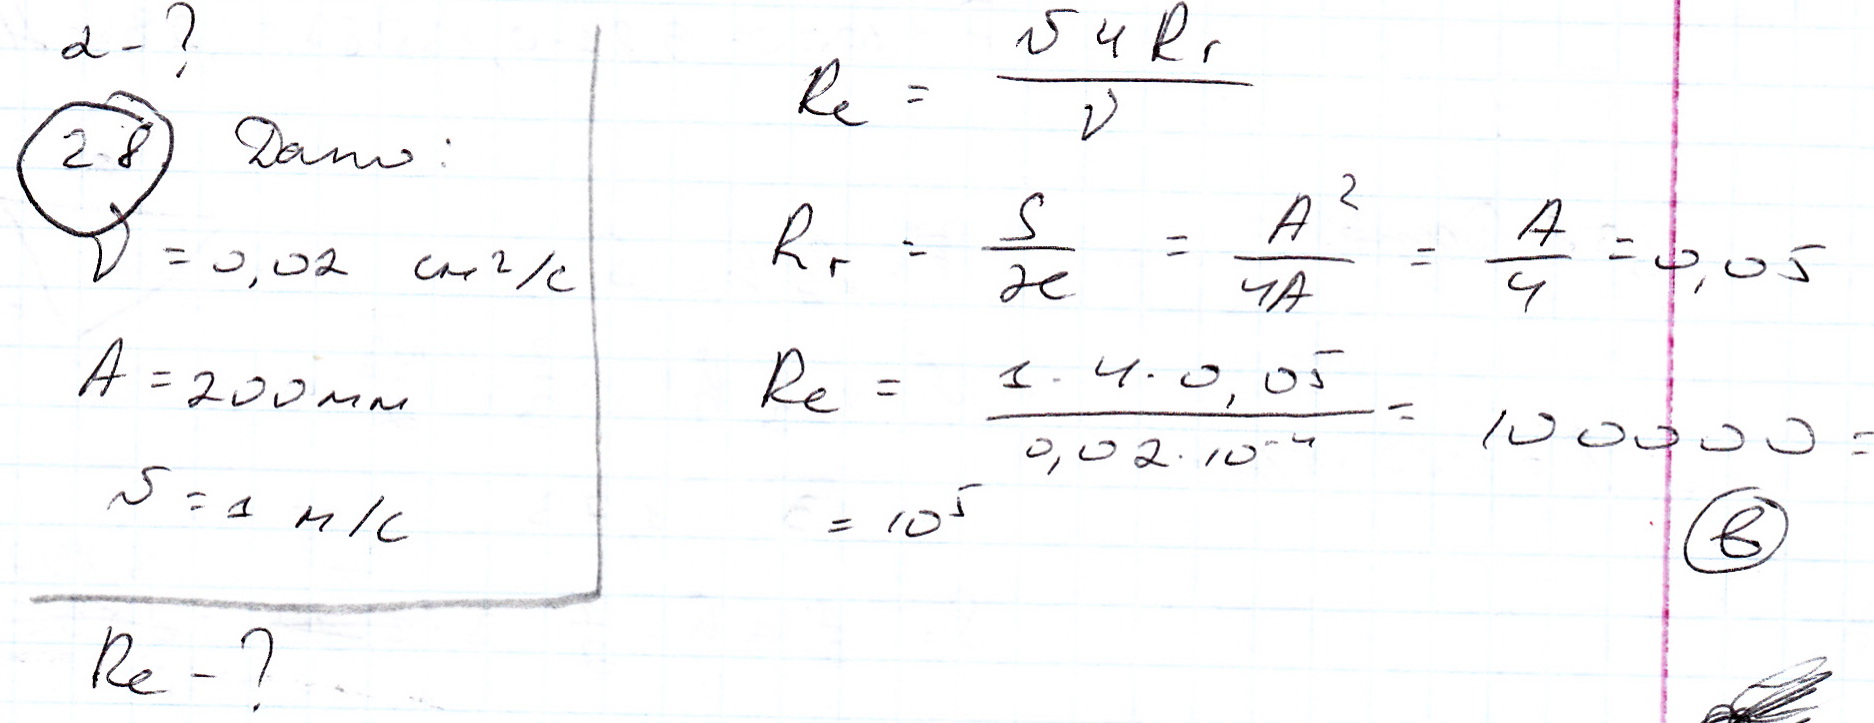 α - ?
2.8 Дано:
ν = 0,02 см²/с
A = 200 мм
v = 1 м/с
Re - ?
Re = v 4 Rг / ν
Rг = S / χ = A² / 4A = A / 4 = 0,05
Re = 1 · 4 · 0,05 / 0,02 · 10⁻⁴ = 100000 =
= 10⁵
в